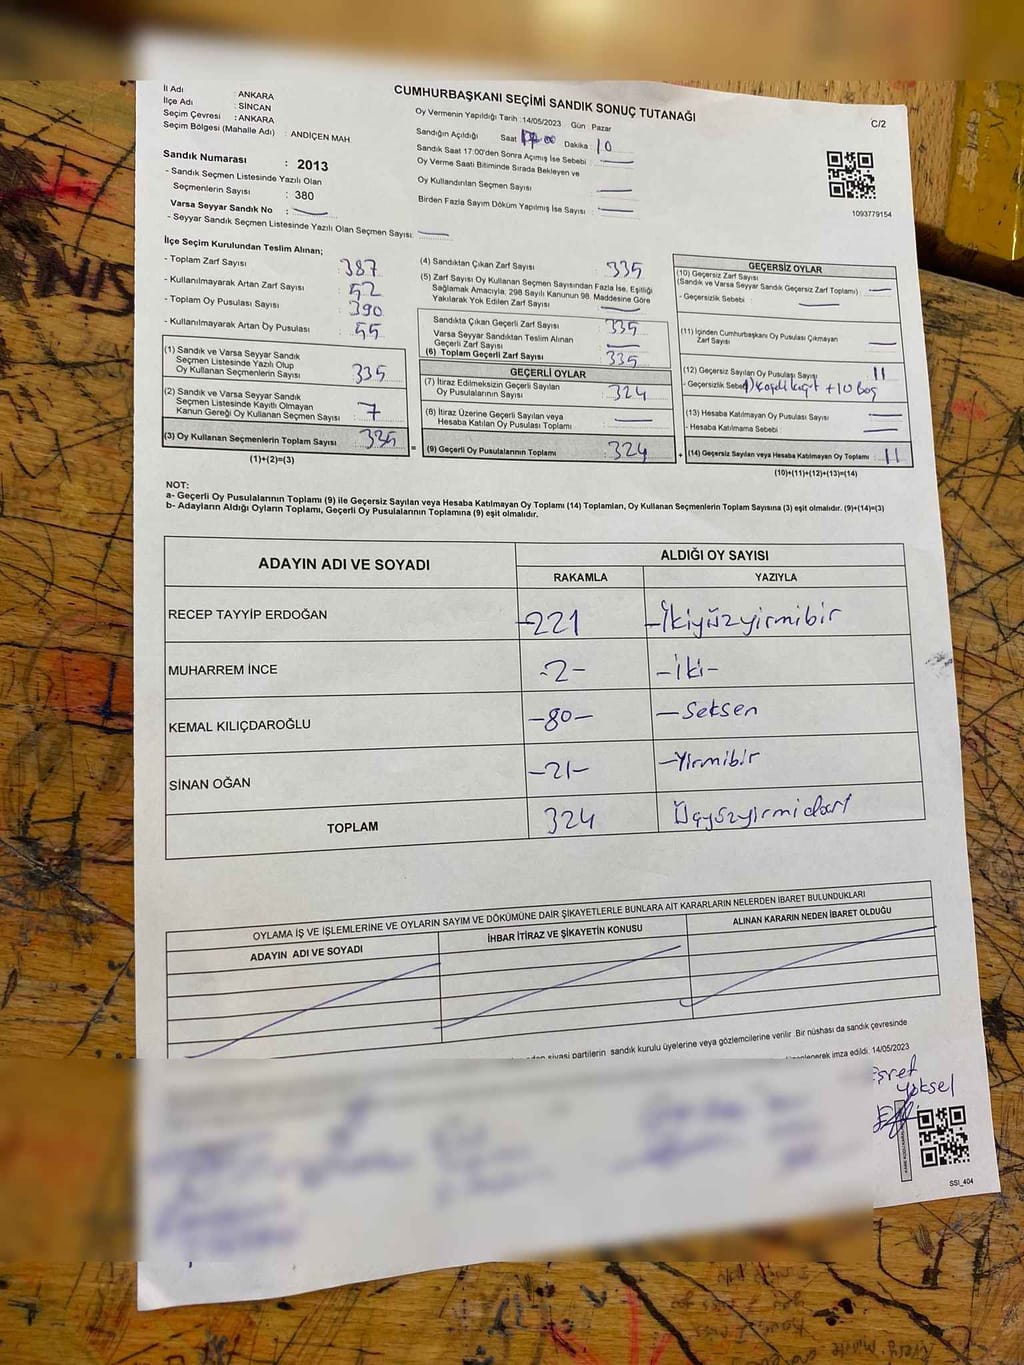 İl Adı : ANKARA
İlçe Adı : SİNCAN
Seçim Çevresi : ANKARA
Seçim Bölgesi (Mahalle Adı) : ANDİÇEN MAH.
CUMHURBAŞKANI SEÇİMİ SANDIK SONUÇ TUTANAĞI
C/2
Oy Vermenin Yapıldığı Tarih :14/05/2023 Gün : Pazar
Sandığın Açıldığı Saat Dakika : 10
Sandık Saat 17:00'den Sonra Açılmış İse Sebebi :
Oy Verme Saati Bitiminde Sırada Bekleyen ve
Oy Kullandırılan Seçmen Sayısı
Birden Fazla Sayım Döküm Yapılmış İse Sayısı :
1093779154
Sandık Numarası : 2013
- Sandık Seçmen Listesinde Yazılı Olan
Seçmenlerin Sayısı : 380
Varsa Seyyar Sandık No :
- Seyyar Sandık Seçmen Listesinde Yazılı Olan Seçmen Sayısı:
İlçe Seçim Kurulundan Teslim Alınan;
- Toplam Zarf Sayısı : 387
- Kullanılmayarak Artan Zarf Sayısı : 52
- Toplam Oy Pusulası Sayısı : 390
- Kullanılmayarak Artan Oy Pusulası : 55
(1) Sandık ve Varsa Seyyar Sandık
Seçmen Listesinde Yazılı Olup
Oy Kullanan Seçmenlerin Sayısı : 335
(2) Sandık ve Varsa Seyyar Sandık
Seçmen Listesinde Kayıtlı Olmayan
Kanun Gereği Oy Kullanan Seçmen Sayısı : 7
(3) Oy Kullanan Seçmenlerin Toplam Sayısı : 335
(1)+(2)=(3)
=
(4) Sandıktan Çıkan Zarf Sayısı : 335
(5) Zarf Sayısı Oy Kullanan Seçmen Sayısından Fazla İse, Eşitliği
Sağlamak Amacıyla, 298 Sayılı Kanunun 98. Maddesine Göre
Yakılarak Yok Edilen Zarf Sayısı :
Sandıkta Çıkan Geçerli Zarf Sayısı : 335
Varsa Seyyar Sandıktan Teslim Alınan
Geçerli Zarf Sayısı :
(6) Toplam Geçerli Zarf Sayısı : 335
GEÇERLİ OYLAR
(7) İtiraz Edilmeksizin Geçerli Sayılan
Oy Pusulasının Sayısı : 324
(8) İtiraz Üzerine Geçerli Sayılan veya
Hesaba Katılan Oy Pusulası Toplamı :
(9) Geçerli Oy Pusulalarının Toplamı : 324
+
GEÇERSİZ OYLAR
(10) Geçersiz Zarf Sayısı
(Sandık ve Varsa Seyyar Sandık Geçersiz Zarf Toplamı) :
- Geçersizlik Sebebi :
(11) İçinden Cumhurbaşkanı Oy Pusulası Çıkmayan
Zarf Sayısı :
(12) Geçersiz Sayılan Oy Pusulası Sayısı : 11
- Geçersizlik Sebebi +10 boş
(13) Hesaba Katılmayan Oy Pusulası Sayısı :
- Hesaba Katılmama Sebebi :
(14) Geçersiz Sayılan veya Hesaba Katılmayan Oy Toplamı : 11
(10)+(11)+(12)+(13)=(14)
NOT:
a- Geçerli Oy Pusulalarının Toplamı (9) ile Geçersiz Sayılan veya Hesaba Katılmayan Oy Toplamı (14) Toplamları, Oy Kullanan Seçmenlerin Toplam Sayısına (3) eşit olmalıdır. (9)+(14)=(3)
b- Adayların Aldığı Oyların Toplamı, Geçerli Oy Pusulalarının Toplamına (9) eşit olmalıdır.
ADAYIN ADI VE SOYADI ALDIĞI OY SAYISI
RAKAMLA YAZIYLA
RECEP TAYYİP ERDOĞAN -221 -İkiyüzyirmibir
MUHARREM İNCE -2- -İki-
KEMAL KILIÇDAROĞLU -80- -Seksen
SİNAN OĞAN -21- -Yirmibir
TOPLAM 324 Üçyüzyirmidört
OYLAMA İŞ VE İŞLEMLERİNE VE OYLARIN SAYIM VE DÖKÜMÜNE DAİR ŞİKAYETLERLE BUNLARA AİT KARARLARIN NELERDEN İBARET BULUNDUKLARI
ADAYIN ADI VE SOYADI İHBAR İTİRAZ VE ŞİKAYETİN KONUSU ALINAN KARARIN NEDEN İBARET OLDUĞU
siyasi partilerin sandık kurulu üyelerine veya gözlemcilerine verilir .Bir nüshası da sandık çevresinde
imza edildi. 14/05/2023
Yüksel
SSI_404